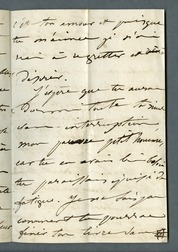 c'est ton amour et puisque
tu m'aimes je n'ai
rien à regretter et
désirer.
J'espère que tu auras
toute la nuit
sans interruption
mon pauvre petit homme,
car tu en avais bien besoin
tu paraissais
fatigué. Je ne sais pas
comment tu pourras
finir ton livre sans